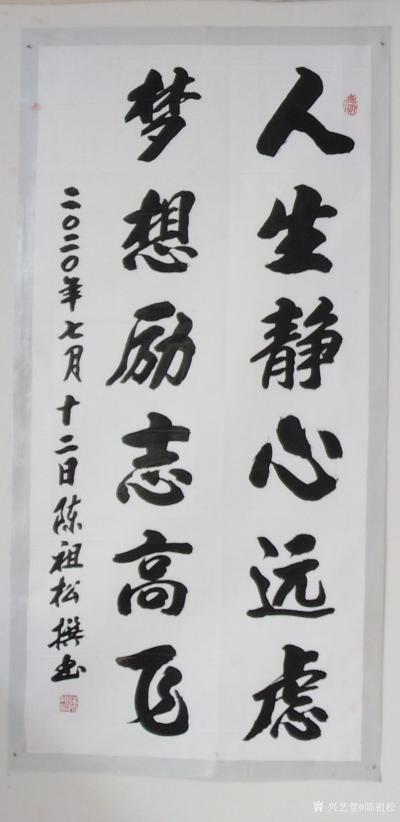 人生静心远虑
梦想励志高飞
二〇二〇年七月十二日陈祖松撰书
兴艺堂@陈祖松